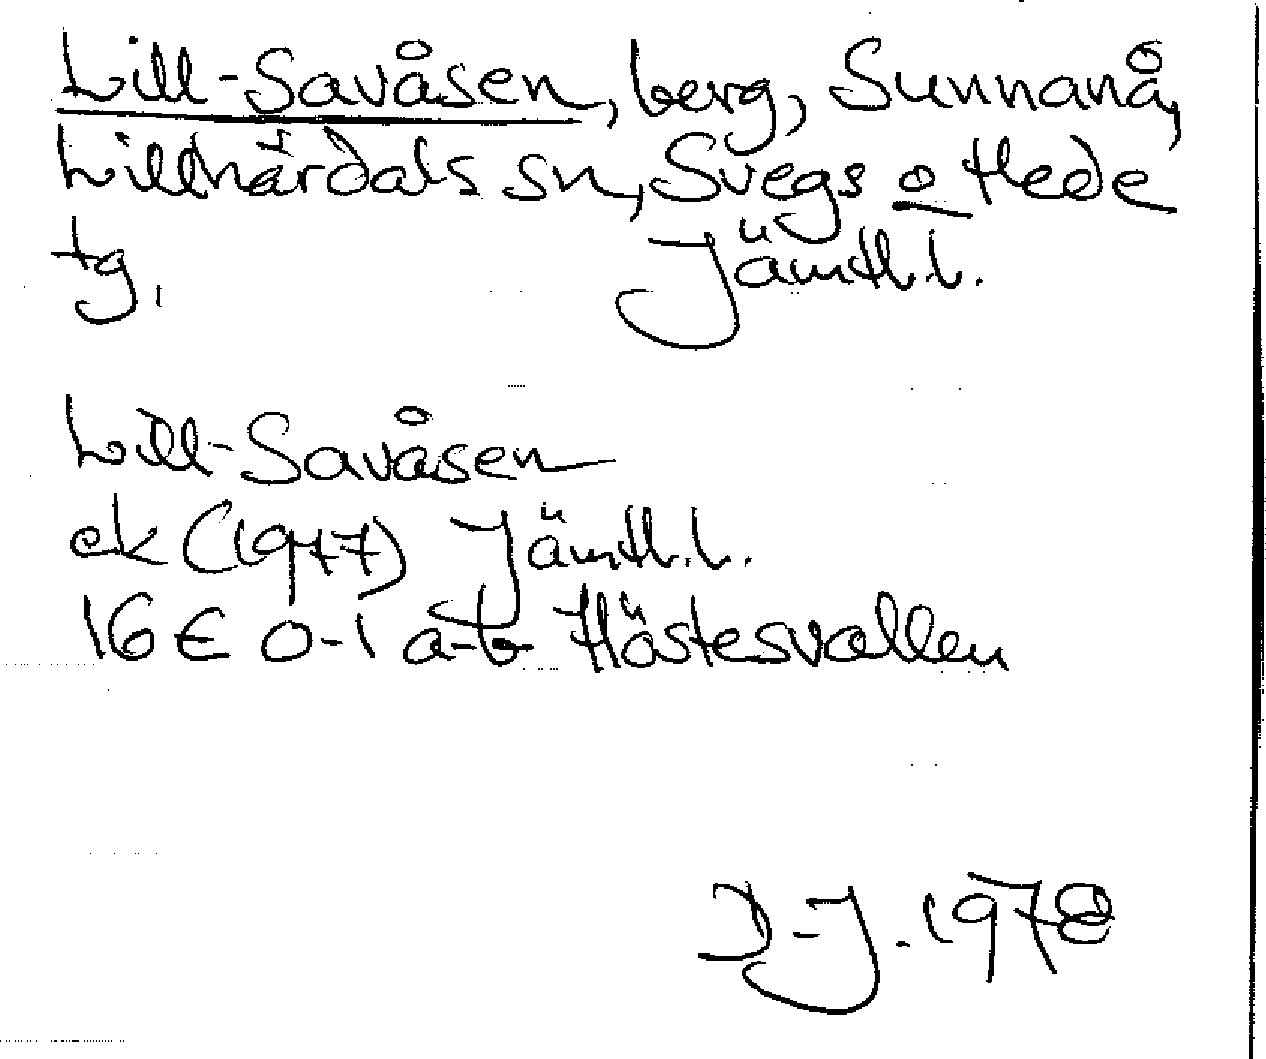 Lill-Savåsen, berg, Sunnanå,
Lillhärdals sn, Svegs o Hede
tg. Jämtl.l.
Lill-Savåsen
ek (1977) Jämtl.l.
16 E 0-1 a-b Hästesvallen
D-J. 1978